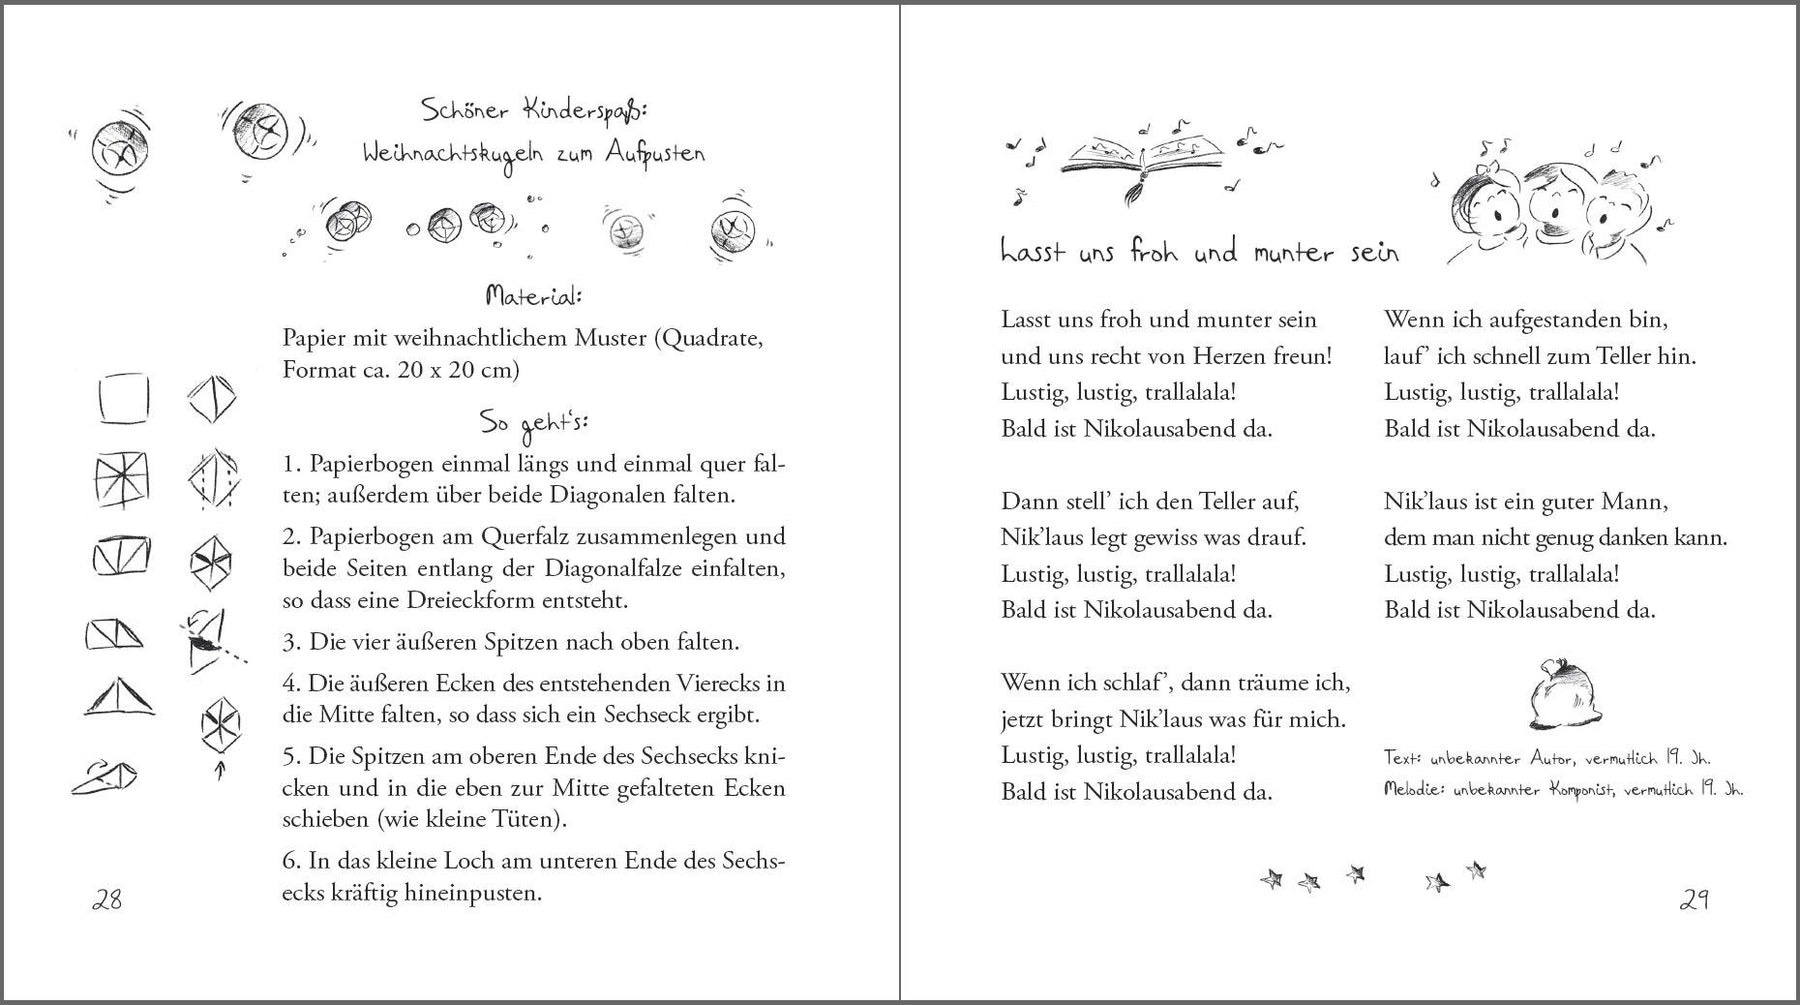 Schöner Kinderspaß:
Weihnachtskugeln zum Aufpusten
Material:
Papier mit weihnachtlichem Muster (Quadrate,
Format ca. 20 x 20 cm)
So geht's:
1. Papierbogen einmal längs und einmal quer fal-
ten; außerdem über beide Diagonalen falten.
2. Papierbogen am Querfalz zusammenlegen und
beide Seiten entlang der Diagonalfalze einfalten,
so dass eine Dreieckform entsteht.
3. Die vier äußeren Spitzen nach oben falten.
4. Die äußeren Ecken des entstehenden Vierecks in
die Mitte falten, so dass sich ein Sechseck ergibt.
5. Die Spitzen am oberen Ende des Sechsecks kni-
cken und in die eben zur Mitte gefalteten Ecken
schieben (wie kleine Tüten).
6. In das kleine Loch am unteren Ende des Sechs-
ecks kräftig hineinpusten.
28
Lasst uns froh und munter sein
Lasst uns froh und munter sein
und uns recht von Herzen freun!
Lustig, lustig, trallalala!
Bald ist Nikolausabend da.
Dann stell’ ich den Teller auf,
Nik’laus legt gewiss was drauf.
Lustig, lustig, trallalala!
Bald ist Nikolausabend da.
Wenn ich schlaf’, dann träume ich,
jetzt bringt Nik’laus was für mich.
Lustig, lustig, trallalala!
Bald ist Nikolausabend da.
Wenn ich aufgestanden bin,
lauf’ ich schnell zum Teller hin.
Lustig, lustig, trallalala!
Bald ist Nikolausabend da.
Nik’laus ist ein guter Mann,
dem man nicht genug danken kann.
Lustig, lustig, trallalala!
Bald ist Nikolausabend da.
Text: unbekannter Autor, vermutlich 19. Jh.
Melodie: unbekannter Komponist, vermutlich 19. Jh.
29